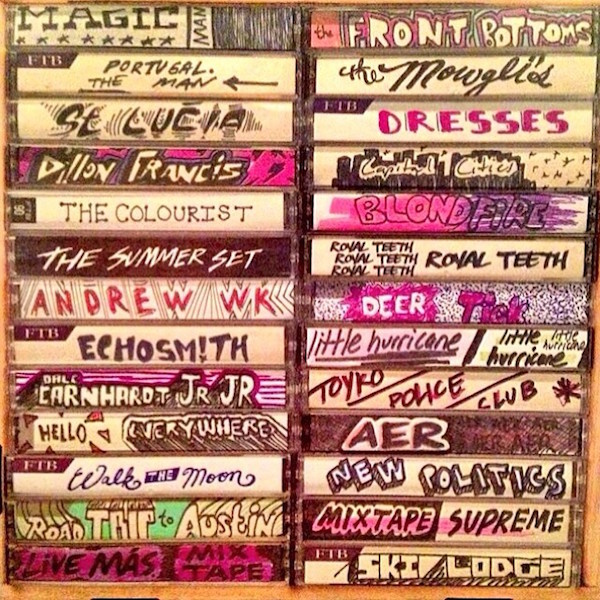 MAGIC MAN
FTB
PORTUGAL.
THE MAN
St LUCIA
Dillon FRANCIS
THE COLOURIST
THE SUMMER SET
ANDREW WK
FTB
ECHOSM!TH
DALE
EARNHARDT JR JR
HELLO EVERYWHERE
FTB
Walk THE Moon
ROAD TRIP to AUSTIN
LIVE MÁS MIX
TAPE
the FRONT BOTTOMS
the Mowgli's
FTB
DRESSES
Capital Cities
BLONDFIRE
ROYAL TEETH
ROYAL TEETH ROYAL TEETH
ROYAL TEETH
DEER Tick
little hurricane little little
hurricane hurricane
TOYKO POLICE CLUB *
AER AER AER AER
AER AER
NEW POLITICS
MIXTAPE SUPREME
FTB
SKI LODGE